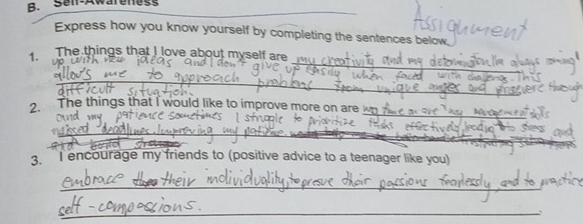 B. Self-Awareness
Assignment
Express how you know yourself by completing the sentences below.
1. The things that I love about myself are my creativity and my determination I'm always coming
up with new ideas and I don't give up easily when faced with challenge. This
allows me to approach problems from unique angles and presevere through
difficult situation.
2. The things that I would like to improve more on are my time management skills
and my patience sometimes I struggle to prioritize tasks effectively leading to stress and
missed deadlines. Improving my patience
3. I encourage my friends to (positive advice to a teenager like you)
embrace their individuality, to presve their passions fearlessly, and to practice
self-compassions.